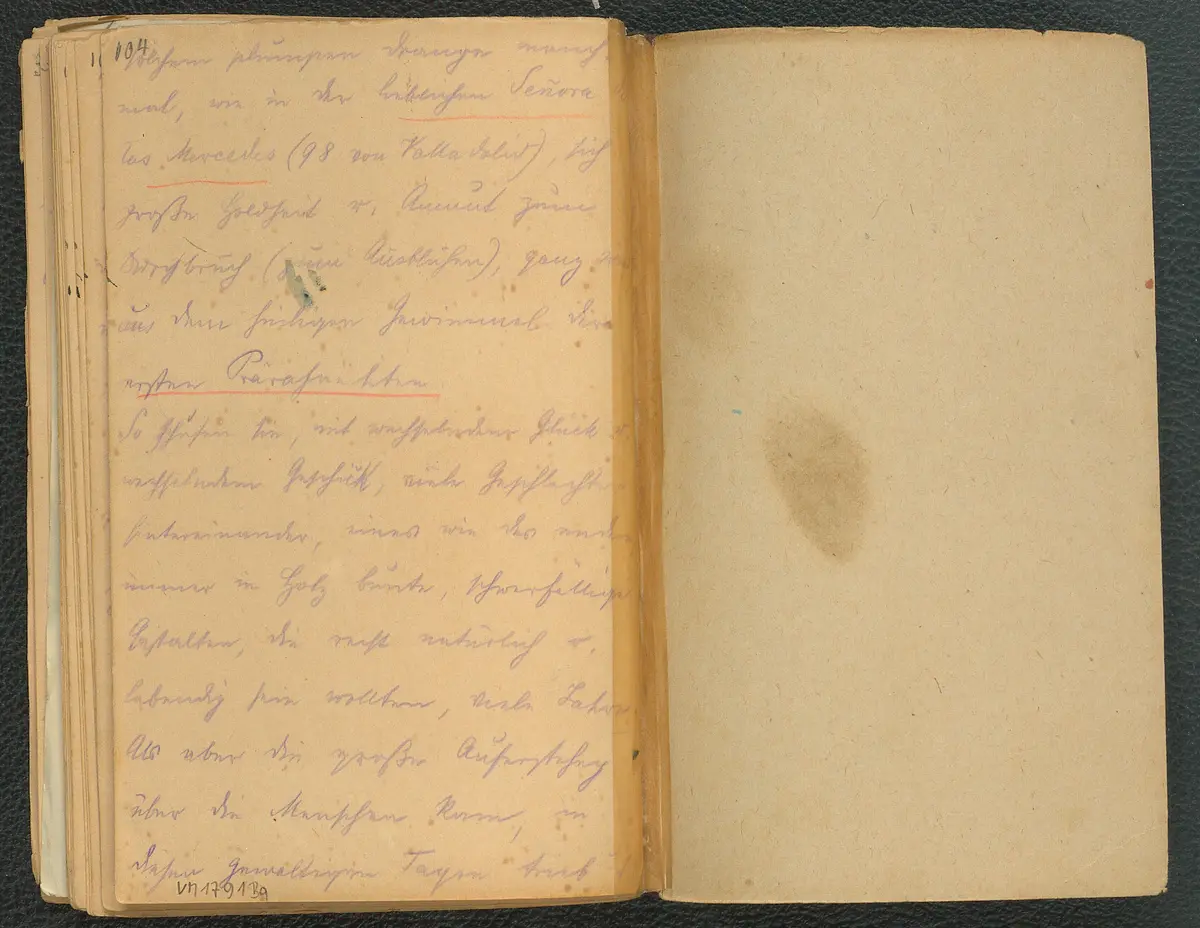 104
solchem plumpen Drange manch
mal, wie in der lieblichen Señora
las Mercedes (98 von Valladolid), sich
große Holdheit u. Anmut zum
Durchbruch (zum Ausblühen), ganz
aus dem heutigen Gewimmel der
ersten
So schufen sie, mit wechselndem Glück
wechselndem Geschick, viele Geschlechter
hintereinander, eines wie das andere
immer in Holz bunte, schwerfällige
Gestalten, die recht natürlich u.
lebendig sein wollten, viele Jahre
Als aber die große Auferstehg
über die Menschen kam, in
diesen gewaltigen Tagen trieb
VM 1791 Ba